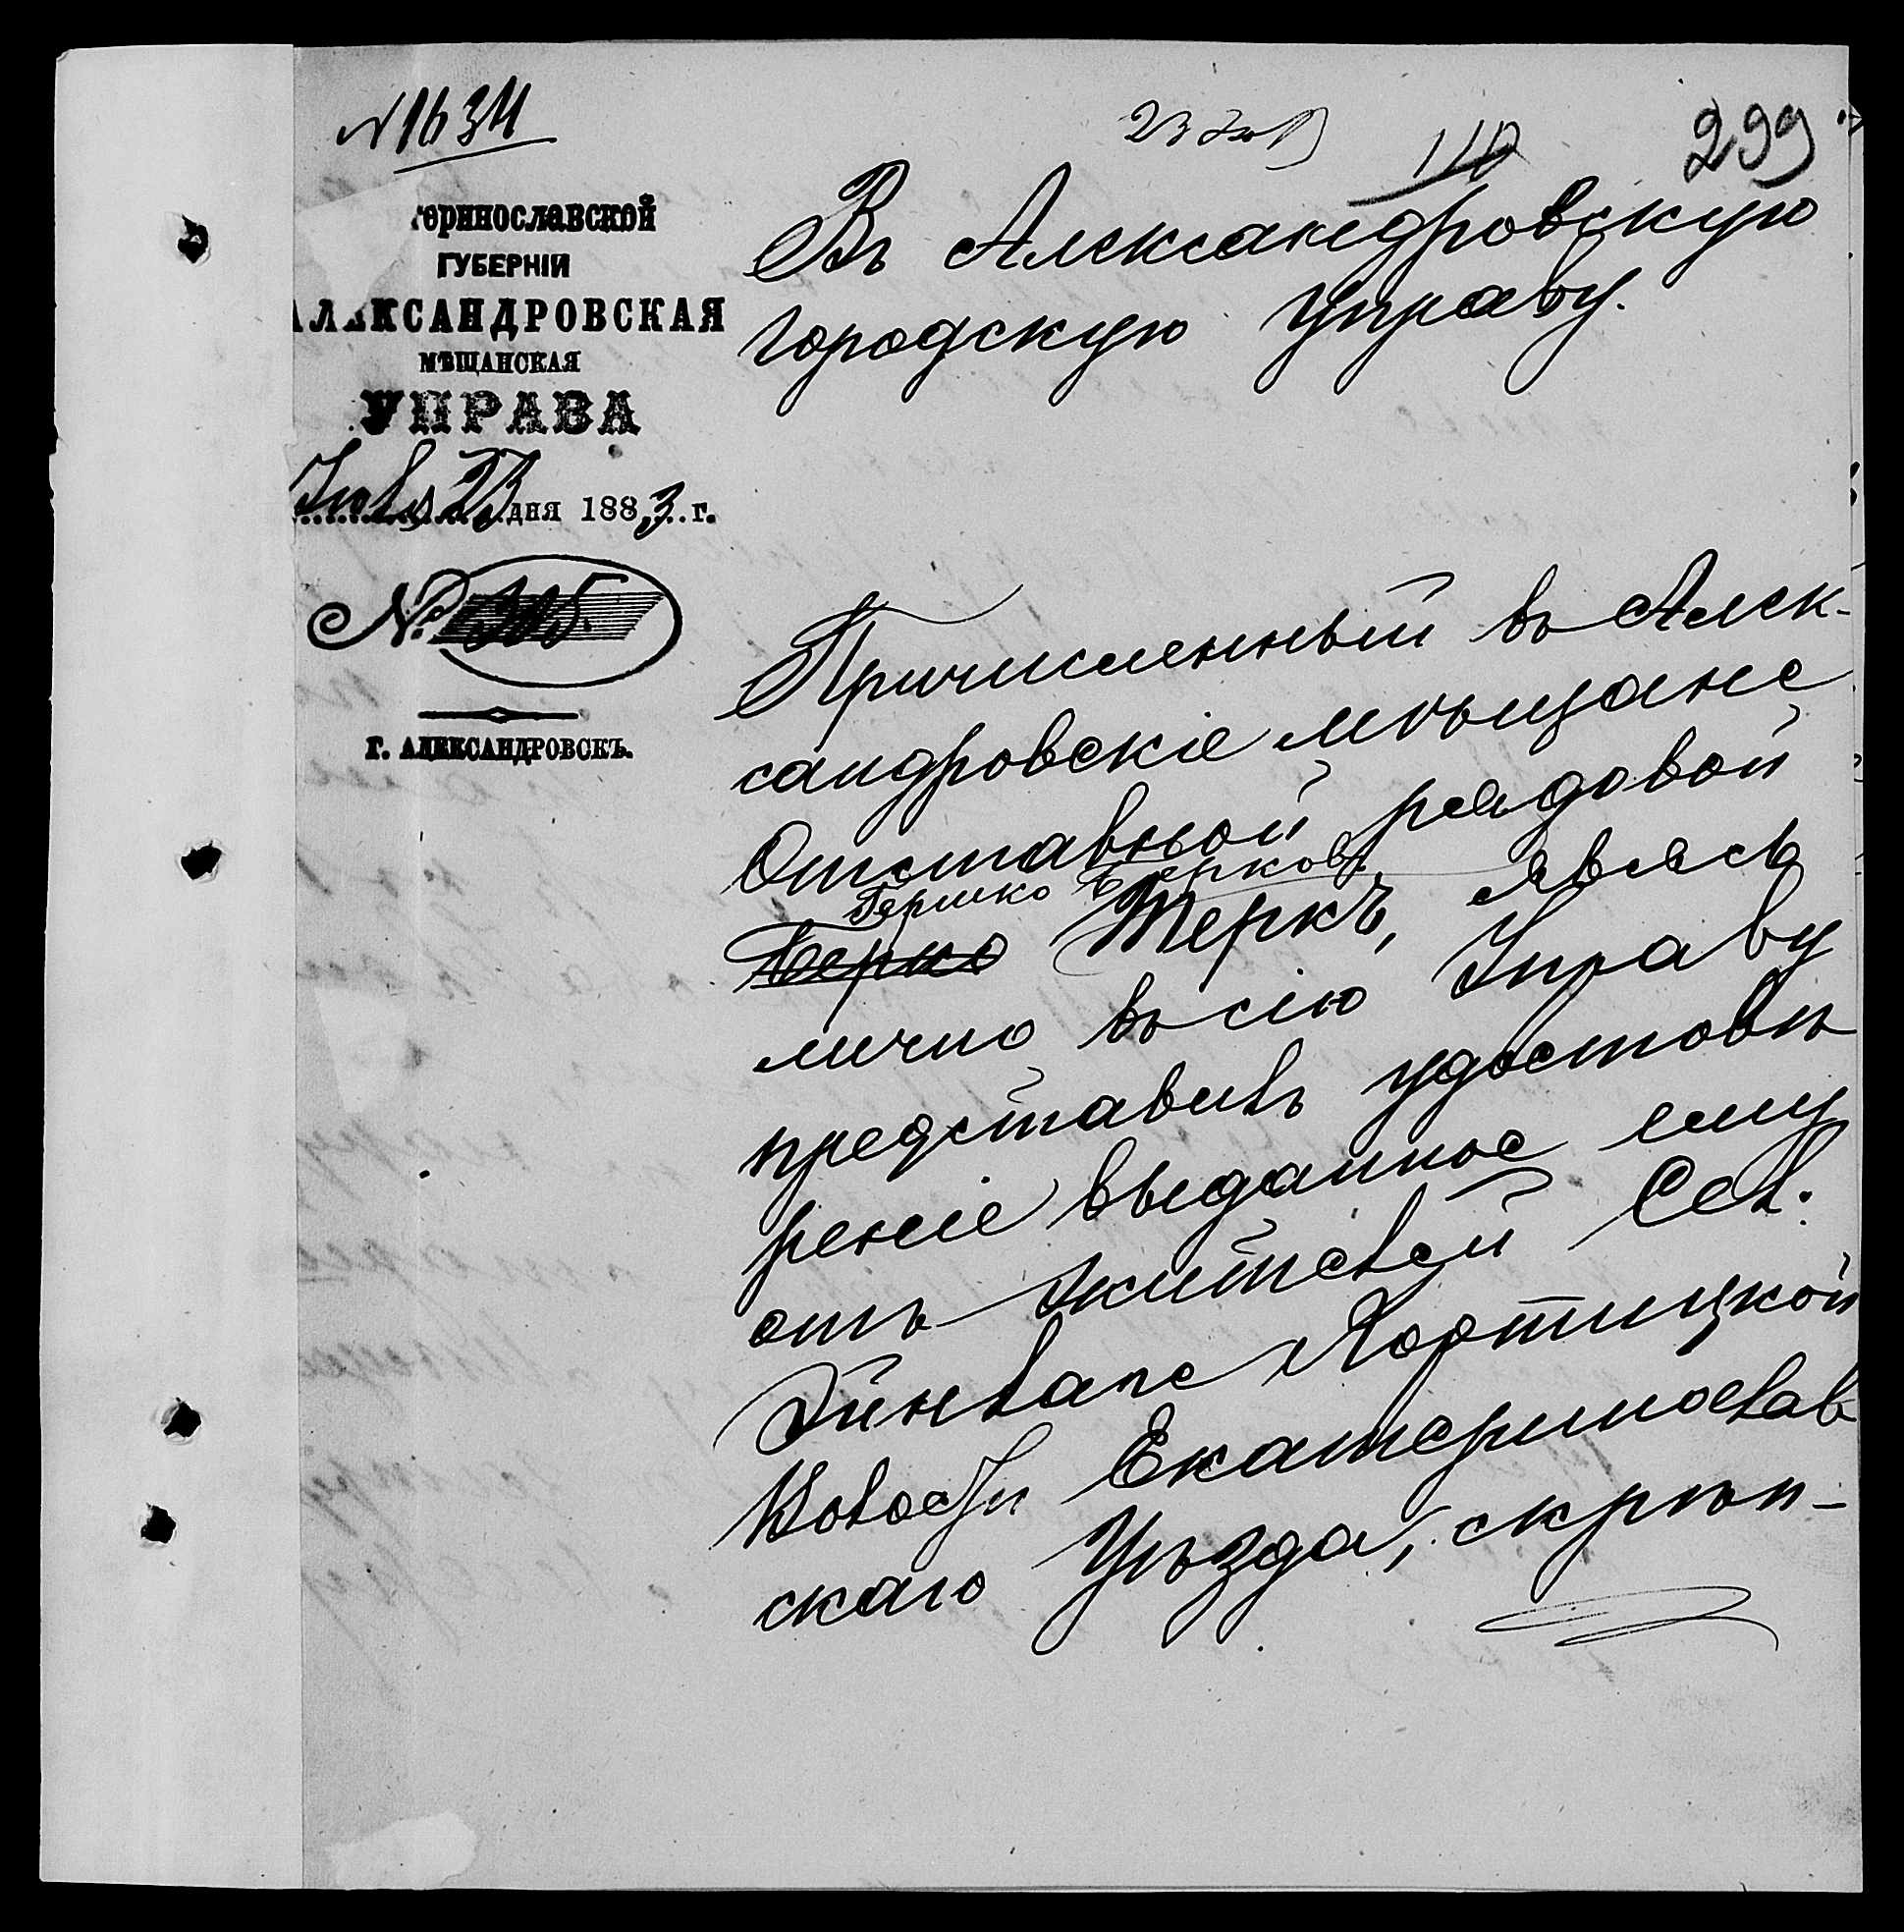 № 1634
299
теринославской
ГУБЕРНІИ
АЛЕКСАНДРОВСКАЯ
МѢЩАНСКАЯ
УПРАВА
Іюля 23 дня 1883 г.
№ 305
г. АЛЕКСАНДРОВСКЪ.
Въ Александровскую
городскую Управу.
Причисленный въ Алек-
сандровскіе мѣщане
Отставной рядовой
Гершко Берковъ
Берко Теркъ, явясь
лично въ сію Управу
представилъ удостовѣ
реніе выданное ему
отъ жителей Сел.
Хортицкой
Волости Екатеринослав
скаго Уѣзда, скрѣп-